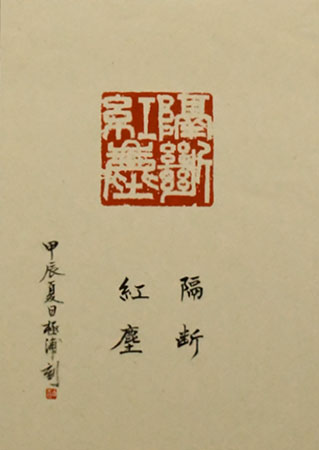 隔斷
紅塵
隔断
紅塵
甲辰夏日極浦刻